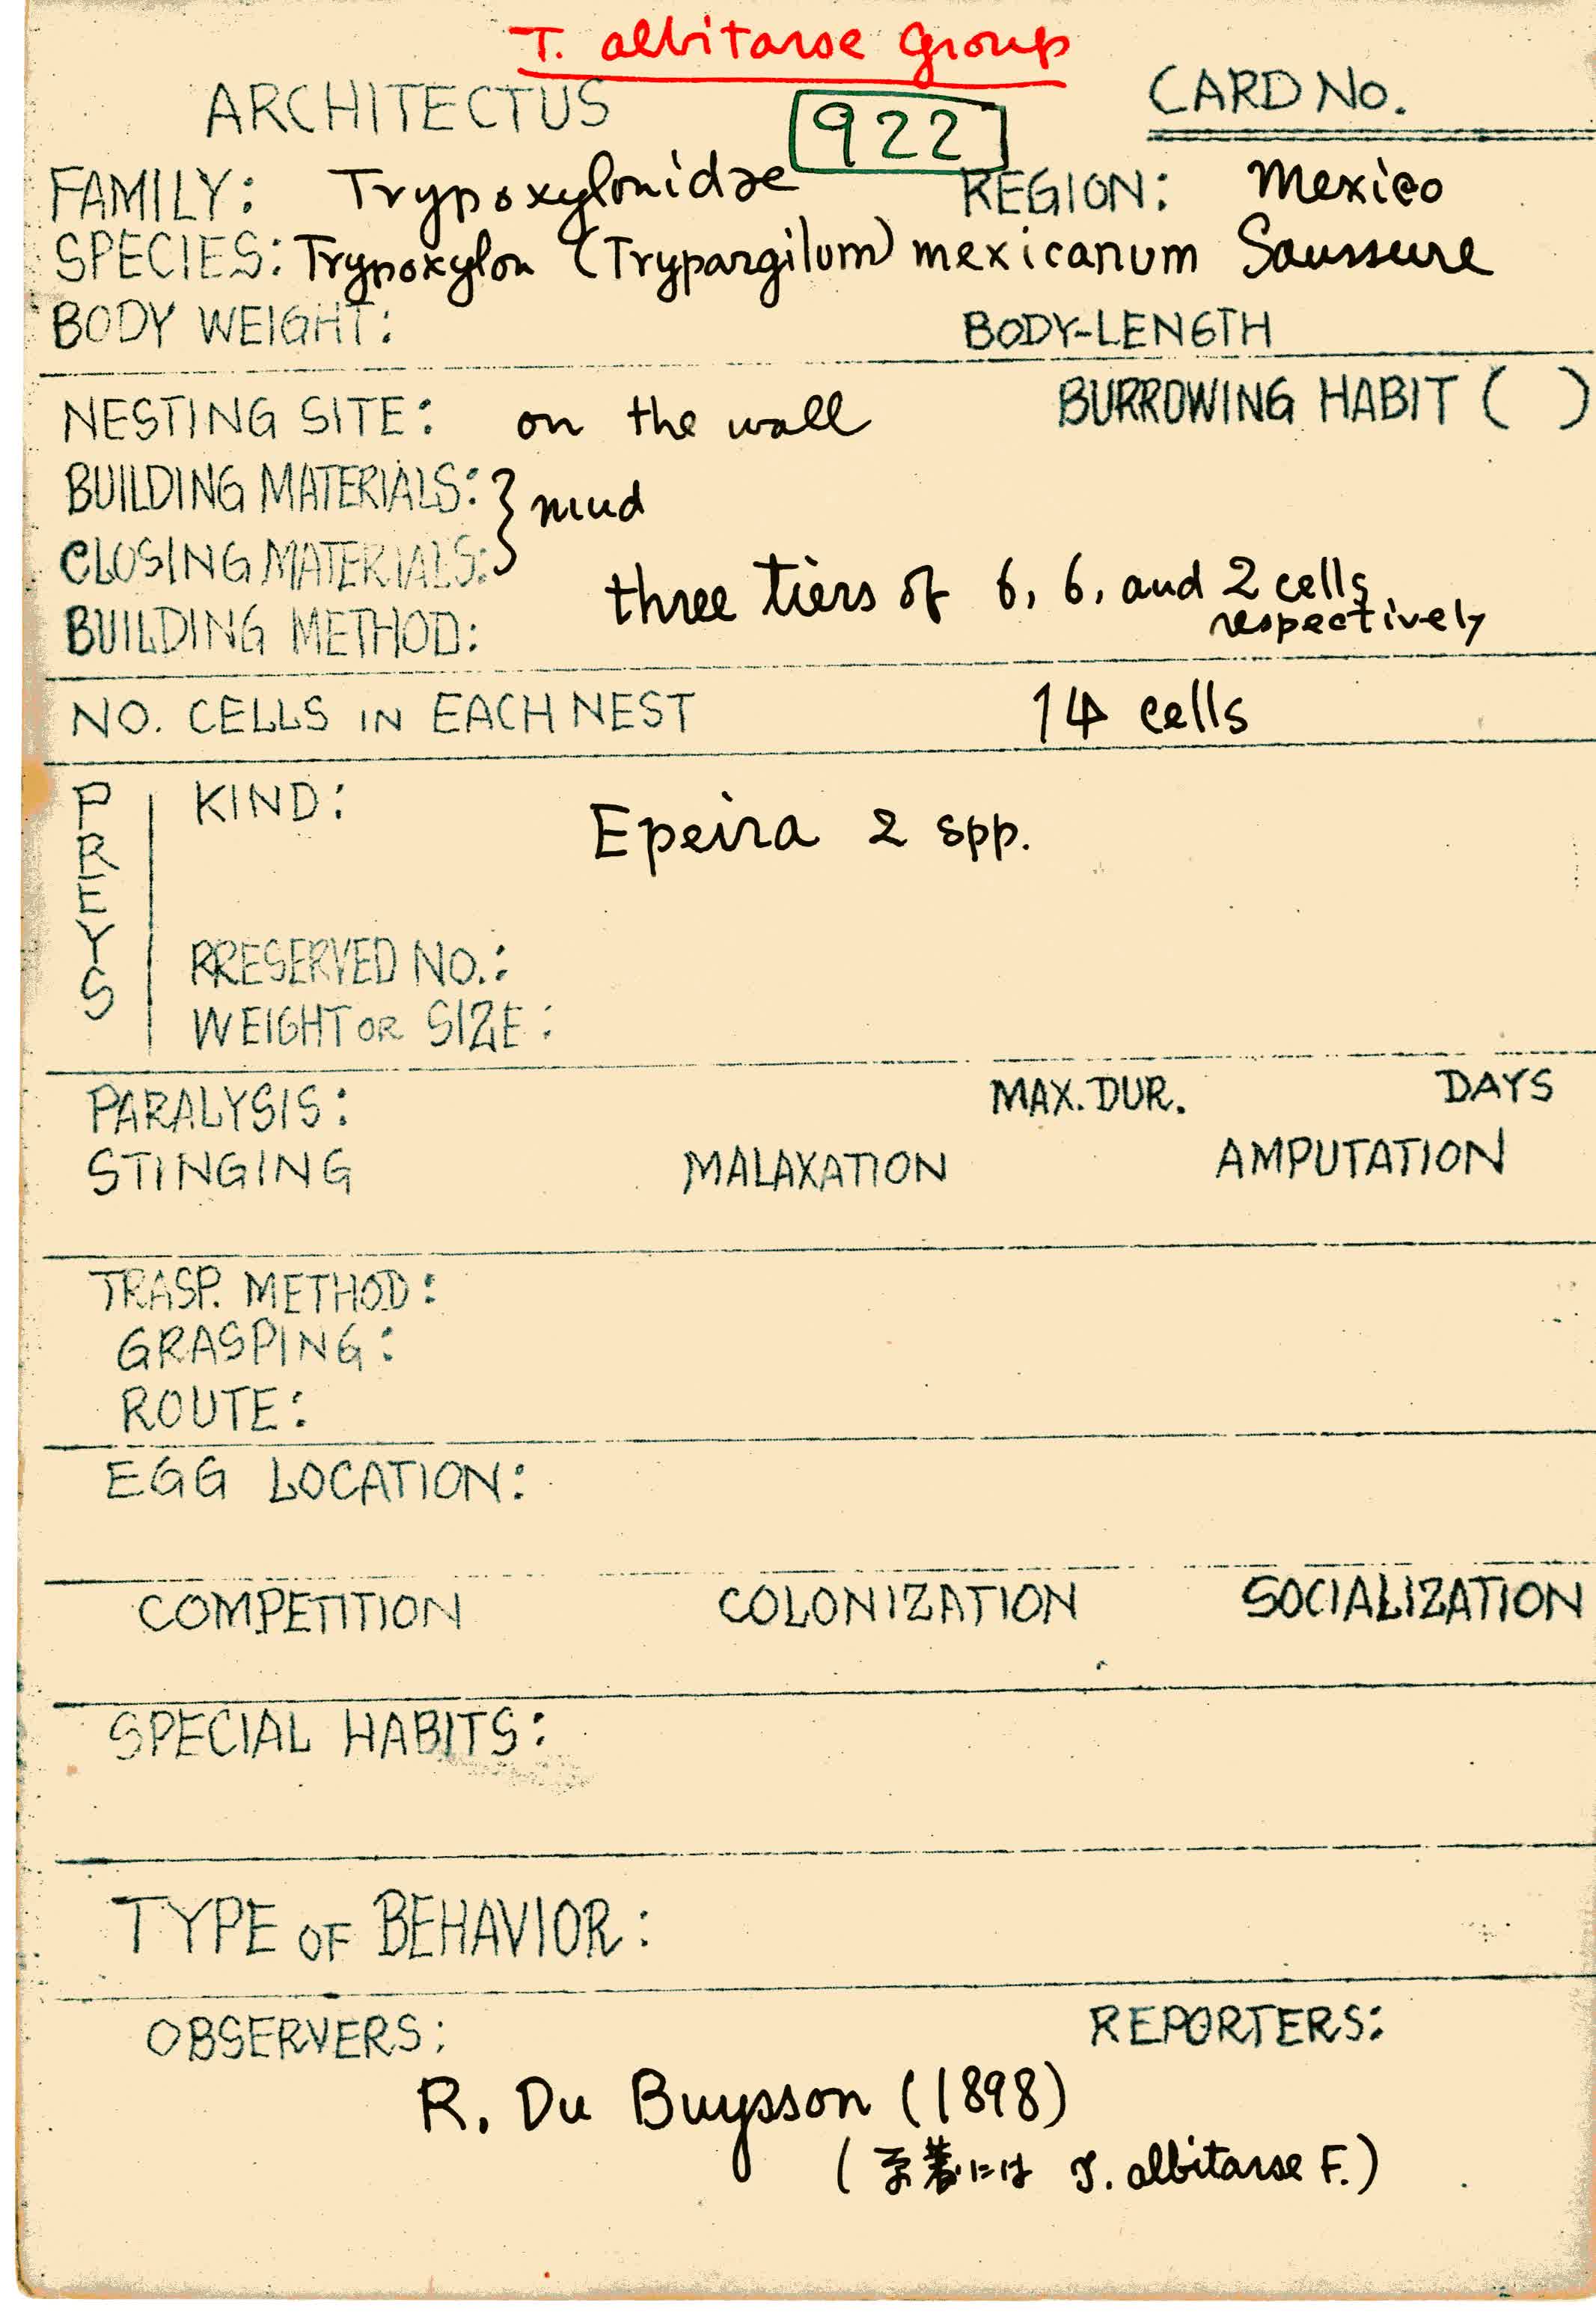 T. albitarse Group
ARCHITECTUS 922 CARD NO.
FAMILY: Trypoxylonidae REGION: Mexico
SPECIES: Trypoxylon (Trypargilum) mexicanum Saussure
BODY WEIGHT: BODY-LENGTH
NESTING SITE: on the wall BURROWING HABIT ( )
BUILDING MATERIALS: } mud
CLOSING MATERIALS:
BUILDING METHOD: three tiers of 6, 6, and 2 cells
respectively
NO. CELLS IN EACH NEST 14 cells
PREYS
KIND: Epeira 2 spp.
PRESERVED NO.:
WEIGHT OR SIZE:
PARALYSIS: MAX. DUR. DAYS
STINGING MALAXATION AMPUTATION
TRASP. METHOD:
GRASPING:
ROUTE:
EGG LOCATION:
COMPETITION COLONIZATION SOCIALIZATION
SPECIAL HABITS:
TYPE OF BEHAVIOR:
OBSERVERS: REPORTERS:
R. Du Buysson (1898)
( 著には T. albitarse F.)